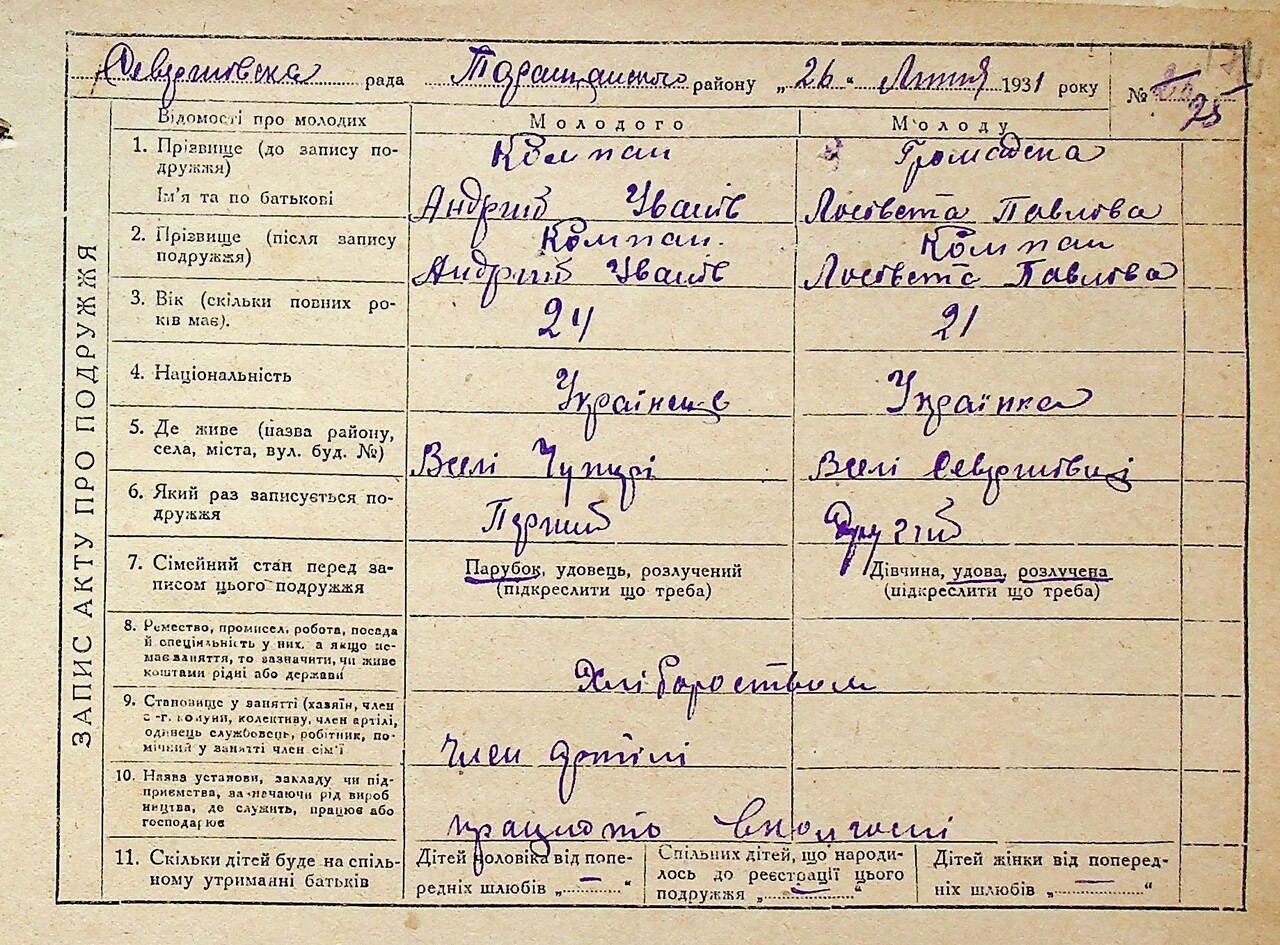 рада Таращанського району „26“ Лютня 1931 року
№ 25
ЗАПИС АКТУ ПРО ПОДРУЖЖЯ
Відомості про молодих Молодого Молоду
1. Прізвище (до запису по-
дружжя)
Компан Громадска
Ім'я та по батькові Андрий Іванів Лисавета Павлова
2. Прізвище (після запису
подружжя)
Компан Компан
Андрий Іванів Лисавета Павлова
3. Вік (скільки повних ро-
ків має).
24 21
4. Національність Українець Українка
5. Де живе (назва району,
села, міста, вул. буд. №)
Вселі Чупирі Вселі
6. Який раз записується по-
дружжя
Перший Другий
7. Сімейний стан перед за-
писом цього подружжя
Парубок, удовець, розлучений
(підкреслити що треба)
Дівчина, удова, розлучена
(підкреслити що треба)
8. Ремество, промисел, робота, посада
й спеціяльність у них, а якщо не-
має заняття, то зазначити, чи живе
коштами рідні або держави
Хліборобством
9. Становище у занятті (хазяїн, член
с.-г. комуни, колективу, член артілі,
одинець службовець, робітник, по-
мічний у занятті член сім'ї
член артілі
10. Назва установи, закладу чи під-
приємства, зазначаючи рід вироб
ництва, де служить, працює або
господарює
вколгоспі
11. Скільки дітей буде на спіль-
ному утриманні батьків
Дітей чоловіка від попе-
редніх шлюбів „—“
Спільних дітей, що народи-
лось до реєстрації цього
подружжя „—“
Дітей жінки від поперед-
ніх шлюбів „—“